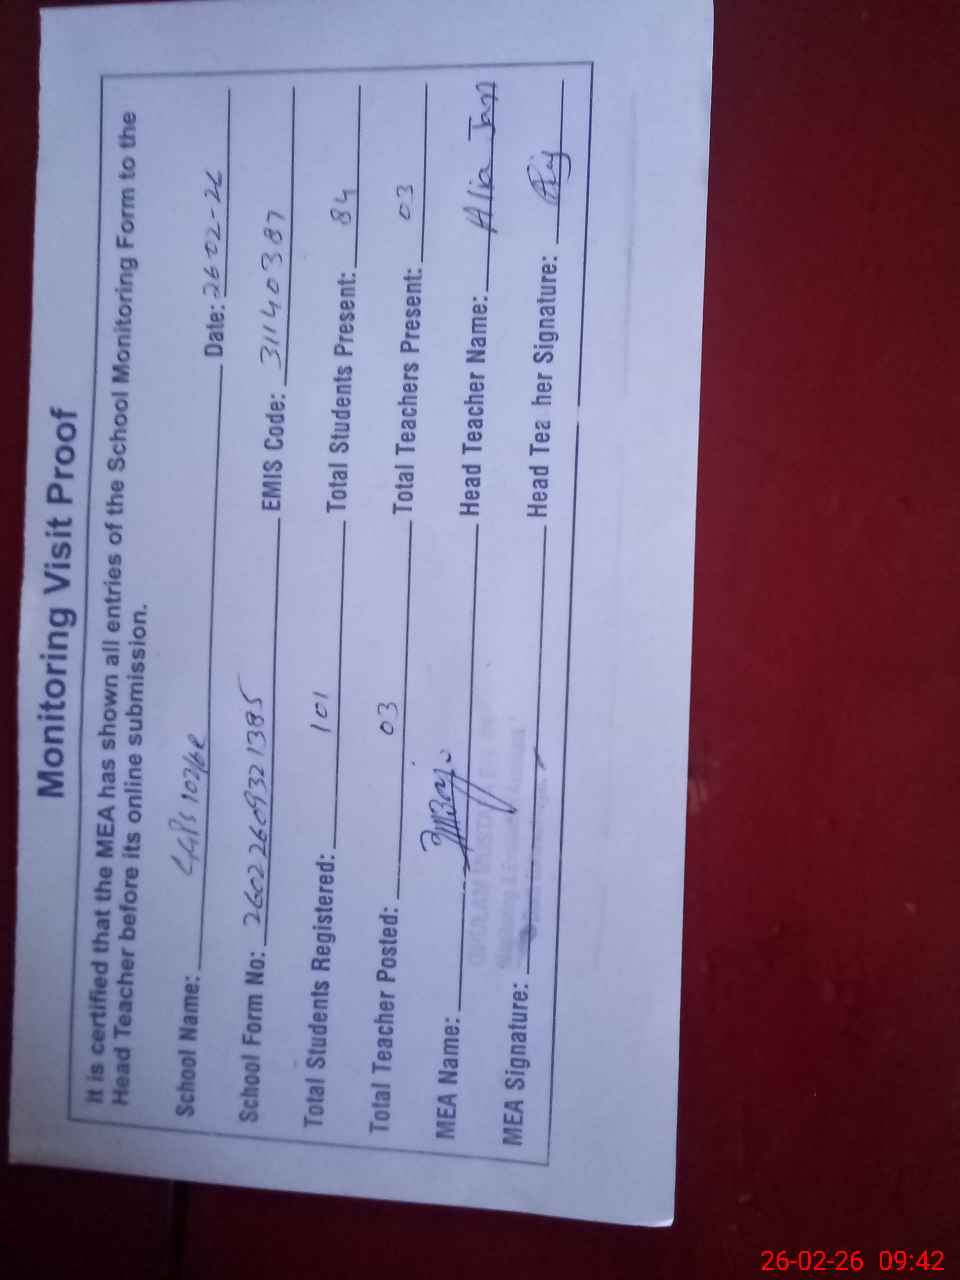 Monitoring Visit Proof
It is certified that the MEA has shown all entries of the School Monitoring Form to the
Head Teacher before its online submission.
School Name: GGPS 102/6R Date: 26-02-26
School Form No: 26022609321385 EMIS Code: 31140387
Total Students Registered: 101 Total Students Present: 84
Total Teacher Posted: 03 Total Teachers Present: 03
MEA Name: Head Teacher Name: Alia Jan
MEA Signature: Head Tea her Signature:
26-02-26 09:42